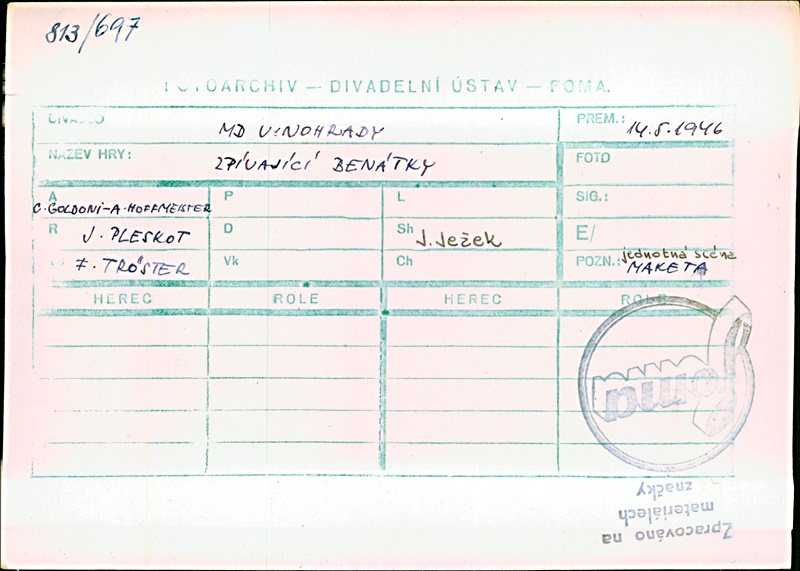 813/697
FOTOARCHIV — DIVADELNÍ ÚSTAV — FOMA.
DIVADLO MD VINOHRADY PREM.: 14.5.1946
NÁZEV HRY: ZPÍVAJÍCÍ BENÁTKY FOTO
A C. GOLDONI-A. HOFFMEISTER P L SIG.:
R J. PLESKOT D Sh J. Ježek E/
F. TRÖSTER Vk Ch POZN.: jednotná scéna
MAKETA
HEREC ROLE HEREC ROLE
Foma
Zpracováno na
materiálech
značky